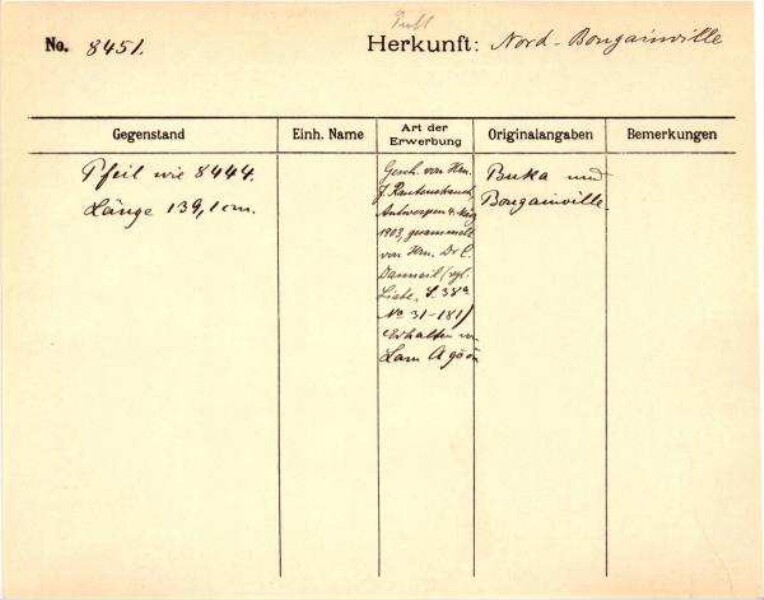 No. 8451.
Herkunft: Nord-Bougainville
Gegenstand
Einh. Name
Art der
Erwerbung
Originalangaben
Bemerkungen
Pfeil wie 8444.
Länge 139,1 cm.
Gesch. von Hrn.
J. Rautenstrauch,
Antwerpen 4. März
1903, gesammelt
von Hrn. Dr C.
Danneil (vgl.
Liste, S. 38a
No 31-181)
Erhalten von
Lam
Buka und
Bougainville